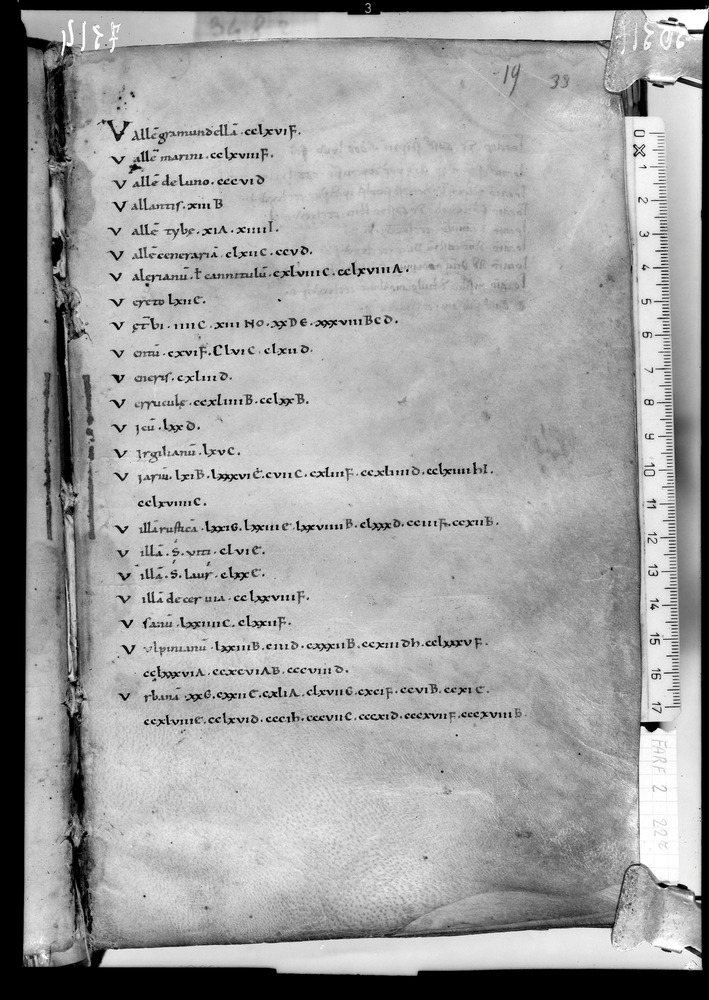 19 33
Vallē gramundellā . cclxvi F.
Vallē marini . cclxviiii F.
Vallē de luno . cccvi D
Vallantis . xiii B
Vallē tybe . xi A . xiiii I.
Vallē ceneraria . clxii C . ccv D.
Valerianū . ł cannitulū . cxlviiii C . cclxviiii A.
Vereto lxii C.
Vgtbi . iiii C . xiii NO . xx DE . xxxviii BCD.
Ventū . cxvi F . Clvi C . clxii D.
Veneris . cxliii D.
Verrucule . ccxliiii B . cclxx B.
Vicū . lxx D.
Virgilianū . lxv C.
Vivariū . lxi B . lxxxvi C . cvii C . cxliii F . ccxliiii D . cclxiiii hI.
cclxviiii C.
Villā rusticā . lxxi G . lxxiii E . lxxviiii B . clxxx D . cciii F . ccxii B.
Villā . S . viti . clvi E.
Villā . S . laur̄ . clxx E.
Villā de cer . cclxxviii F.
Vsanū . lxxiiii C . clxxii F.
Vulpinianū . lxxiii B . ciii D . cxxxii B . ccxiii Dh . cclxxxv F.
cclxxxvi A . ccxcvi AB . cccviii D.
Vrbanā . xx G . cxxii E . cxli A . clxvii G . cxci F . ccvi B . ccxi E.
ccxlviiii E . cclxvi D . ccci h . cccvii C . cccxi D . cccxvii F . cccxviii B.
0 1 2 3 4 5 6 7 8 9 10 11 12 13 14 15 16 17
FARF 2 22r
3